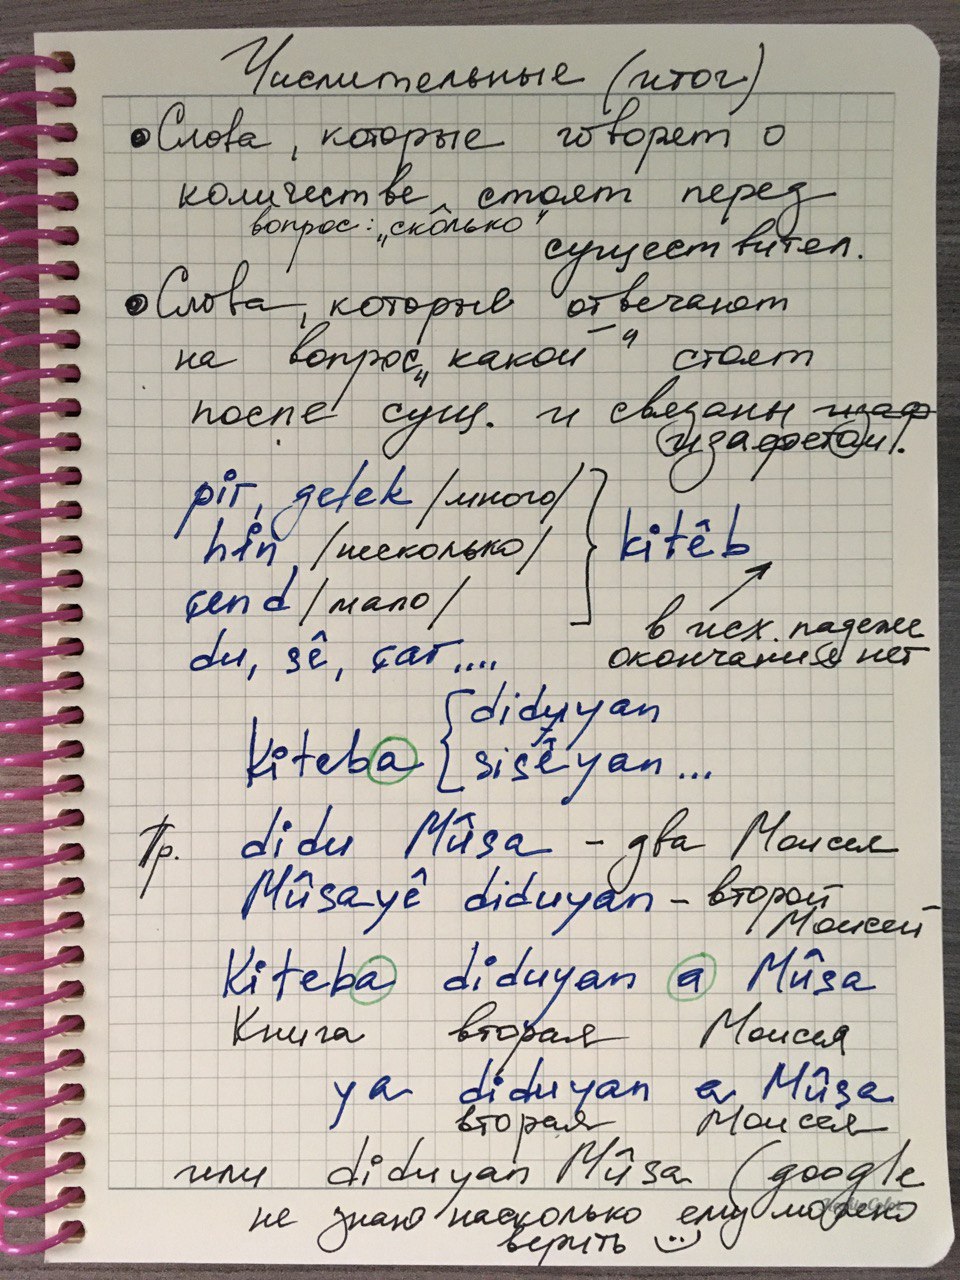 Числительные (итог)
• Слова, которые говорят о
количестве стоят перед
вопрос: „сколько“
существител.
• Слова, которые отвечают
на вопрос „какой“ стоят
после сущ. и связаны изаф
изафетом.
pir, gelek /много/
hin /несколько/
kitêb
çend /мало/
в исх. падеже
du, sê, çar....
окончания нет
kiteba
diduyan
sisêyan...
Пр. didu Mûsa - два Моисея
Mûsayê diduyan - второй
Моисей
Kiteba diduyan a Mûsa
Книга вторая Моисея
ya diduyan a Mûsa
вторая Моисея
или diduyan Mûsa (google
не знаю насколько ему можно
верить